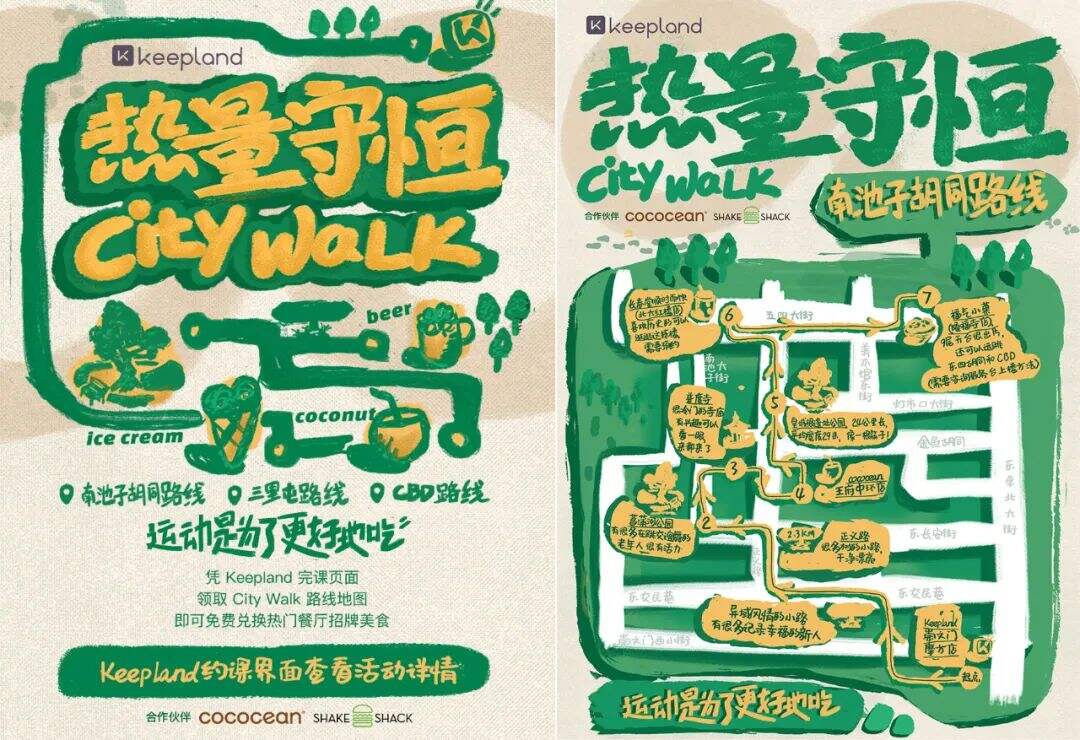 keepland
热量守恒
City Walk
beer
ice cream
coconut
南池子胡同路线
三里屯路线
CBD路线
运动是为了更好地吃
凭 Keepland 完课页面
领取 City Walk 路线地图
即可免费兑换热门餐厅招牌美食
Keepland约课界面查看活动详情
合作伙伴 COCOCEAN® SHAKE SHACK
keepland
热量守恒
City Walk
合作伙伴 COCOCEAN® SHAKE SHACK
南池子胡同路线
(北大红楼店)
喜欢历史的可以
6
五四大街
7
福气小菓
(隆福寺店)
还可以逛逛
东四胡同和CBD
(需要咨询服务台上楼方法)
南池大
子街
美术馆东街
灯市口大街
金鱼胡同
东单北大街
普度寺
很冷门的寺庙
有兴趣可以
看一眼
来都来了
5
3
4
cococean
王府中环店
菖蒲河公园
有很多在跳交谊舞的
老年人很有活力
2
2.3KM
正义路
很多树的小路,
干净漂亮
东长安街
东交民巷
东交民巷
异域风情的小路
有很多记录幸福的新人
崇文门西小街
Keepland
崇文门
魔方店
起点
运动是为了更好地吃